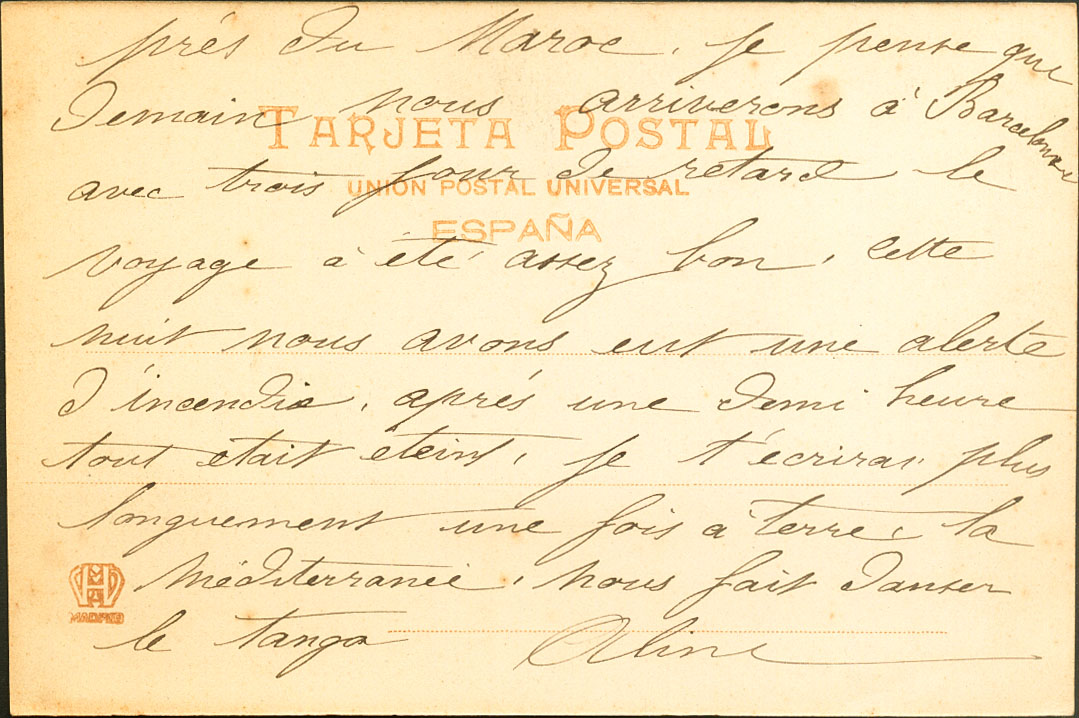 près du Maroc. je pense que
Demain nous arriverons à Barcelone
TARJETA POSTAL
avec trois jour de retard le
UNION POSTAL UNIVERSAL
ESPAÑA
voyage à été assez bon, cette
nuit nous avons eut une alerte
d'incendie, après une demi heure
tout etait éteint, je t'écrirai plus
longuement une fois a terre, la
Méditerranée, nous fait danser
MADRID
le tango Aline